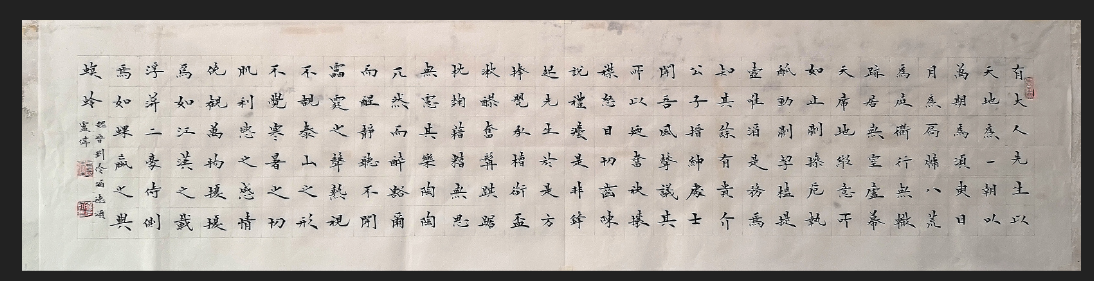 有大人先生以
天地為一朝以
萬期為須臾日
月為扃牖八荒
為庭衢行無轍
跡居無室廬幕
天席地縱意所
如止則操卮執
觚動則挈榼提
壺惟酒是務焉
知其餘有貴介
公子搢紳處士
聞吾風聲議其
所以乃奮袂攘
襟怒目切齒陳
說禮法是非鋒
起先生於是方
捧甖承槽銜盃
漱醪奮髯踑踞
枕麴藉糟無思
無慮其樂陶陶
兀然而醉豁爾
而醒靜聽不聞
雷霆之聲熟視
不覩泰山之形
不覺寒暑之切
肌利慾之感情
俯觀萬物擾擾
焉如江漢之載
浮萍二豪侍側
焉如蜾蠃之與
螟蛉
晉劉伶酒德頌